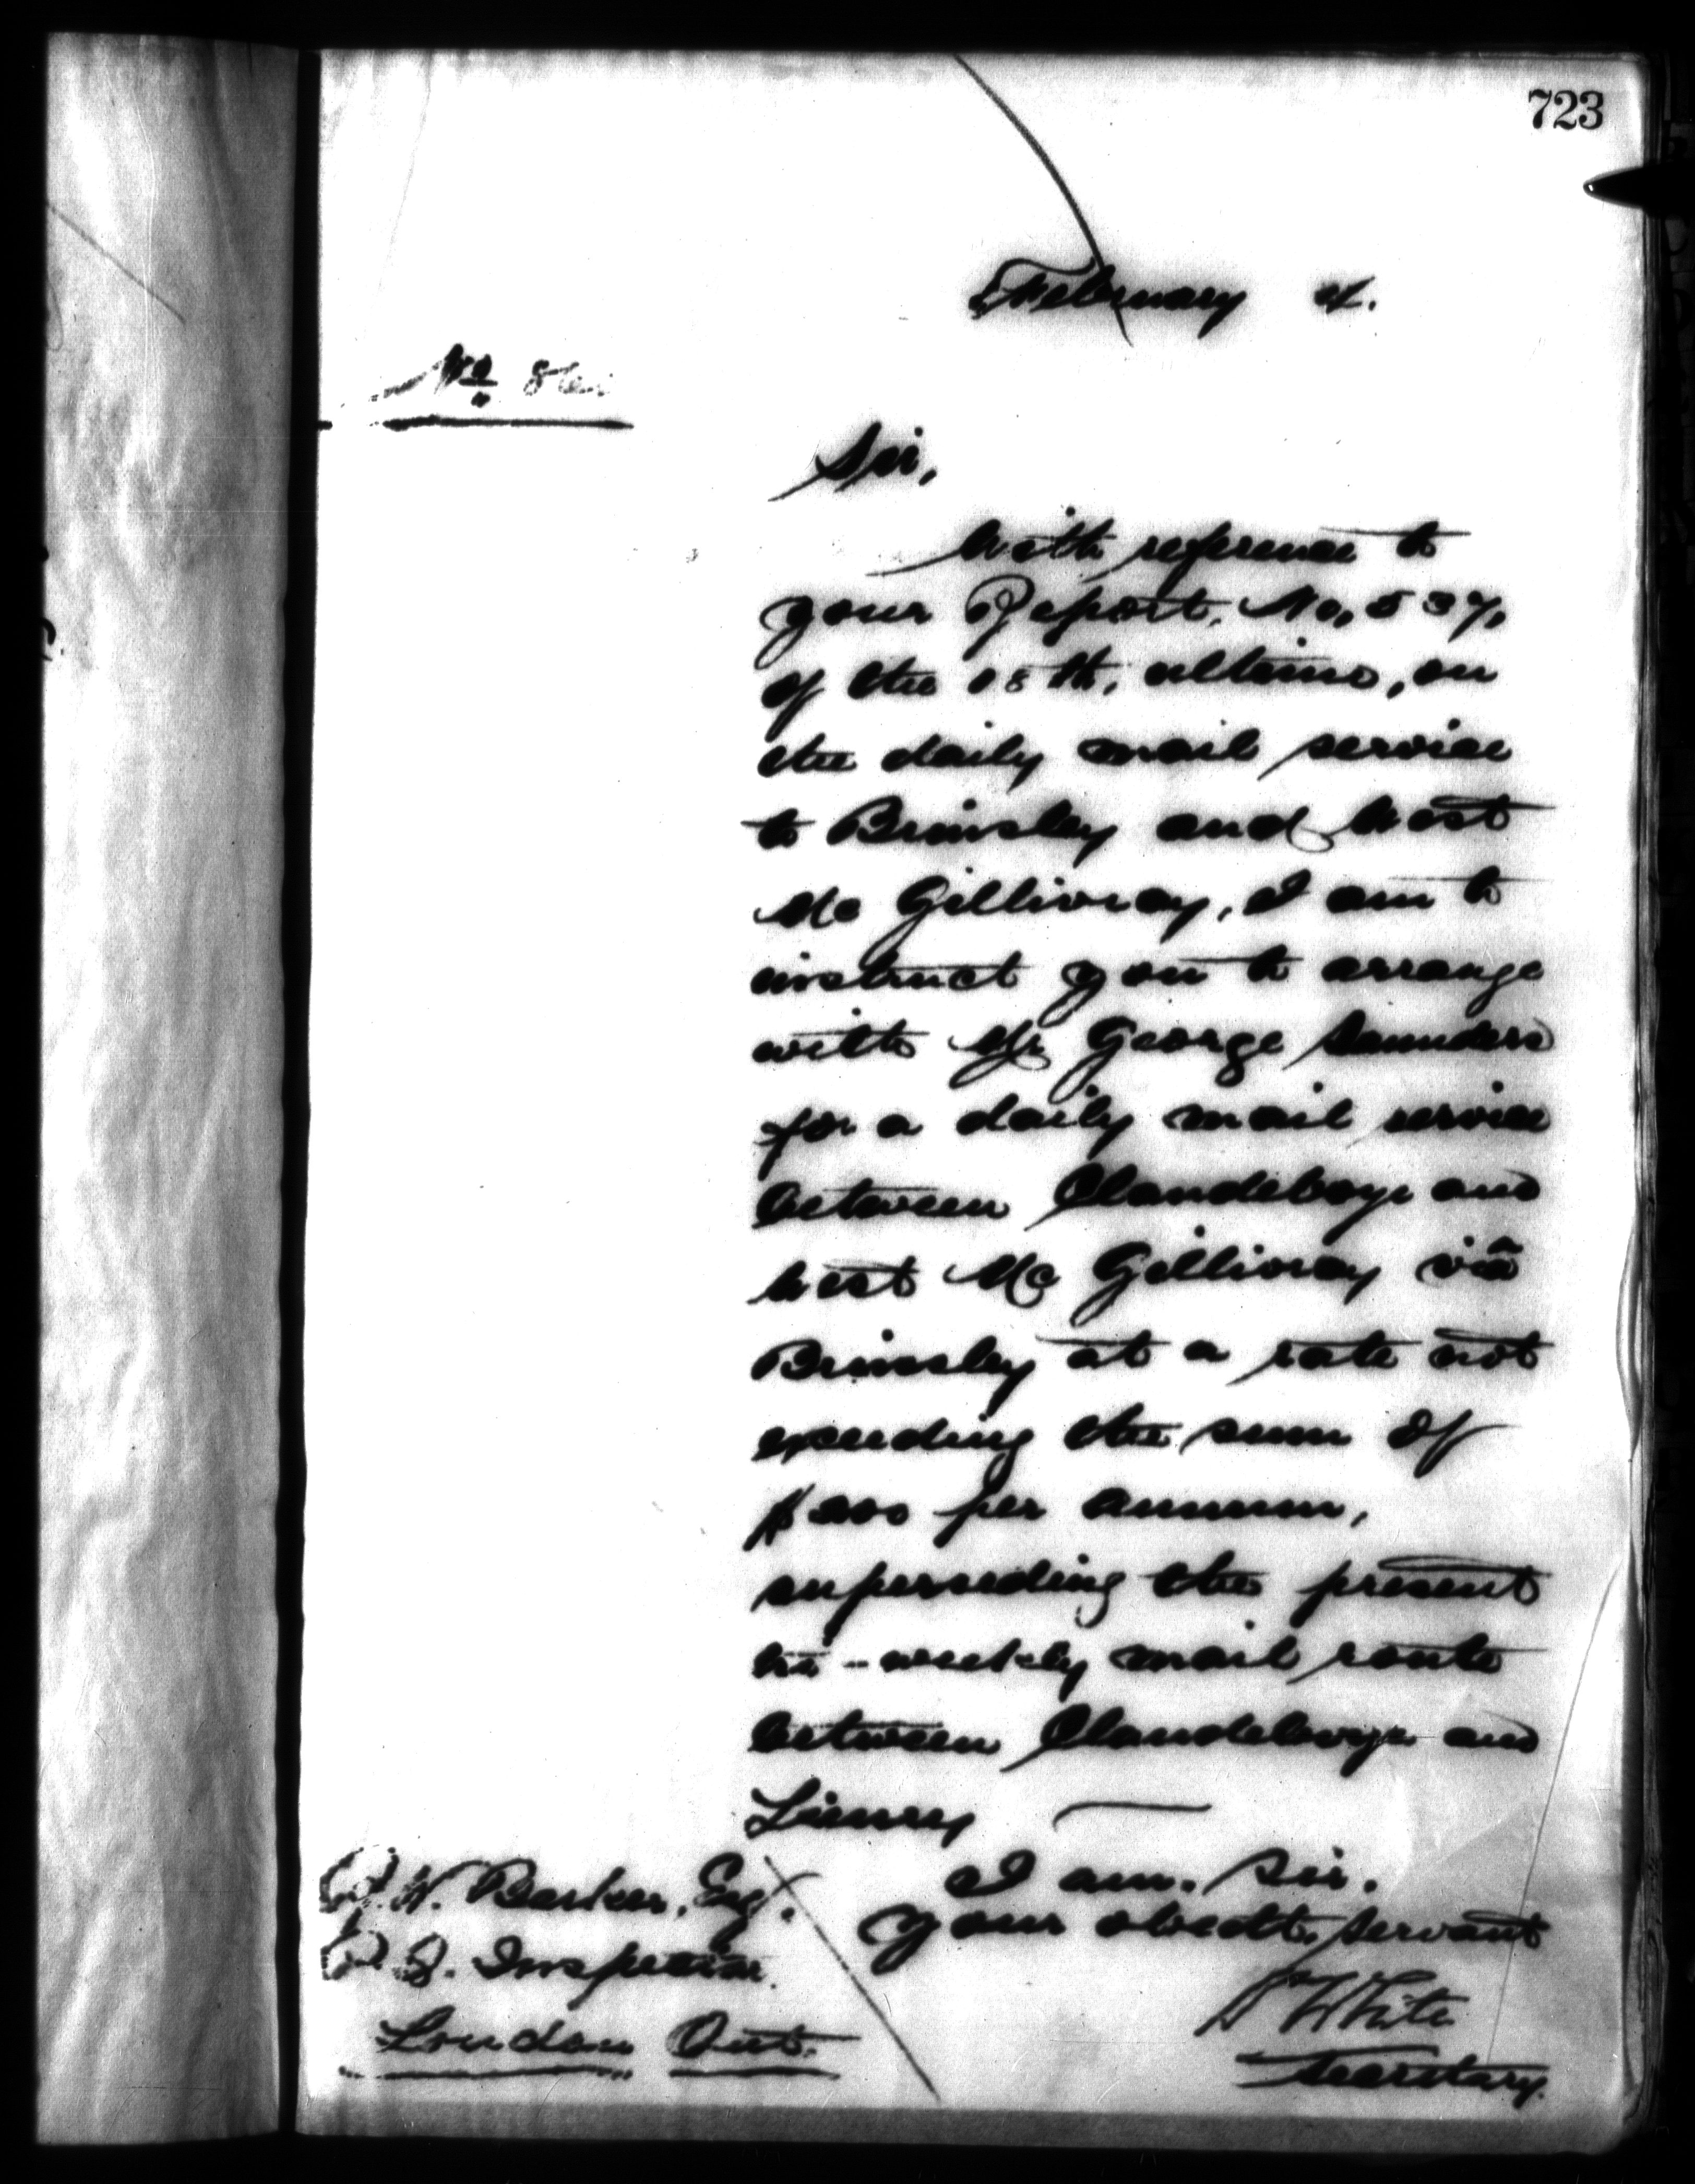 723
February 4.
No
Sir,
With reference to
your Report, No, 537,
of the 18th, ultimo, on
the daily mail service
to Brinsley and West
Mc Gillivray, I am to
instruct you to arrange
with Mr George Saunders
for a daily mail service
between Clandeboye and
West Mc Gillivray viâ
Brinsley at a rate not
exceeding the sum of
per annum,
superseding the present
-weekly mail route
between Clandeboye and
Lieury
I am. Sir.
Your obedt. servant
White
Secretary.
W. Barker, Esq.
P. O. Inspector.
London Ont.